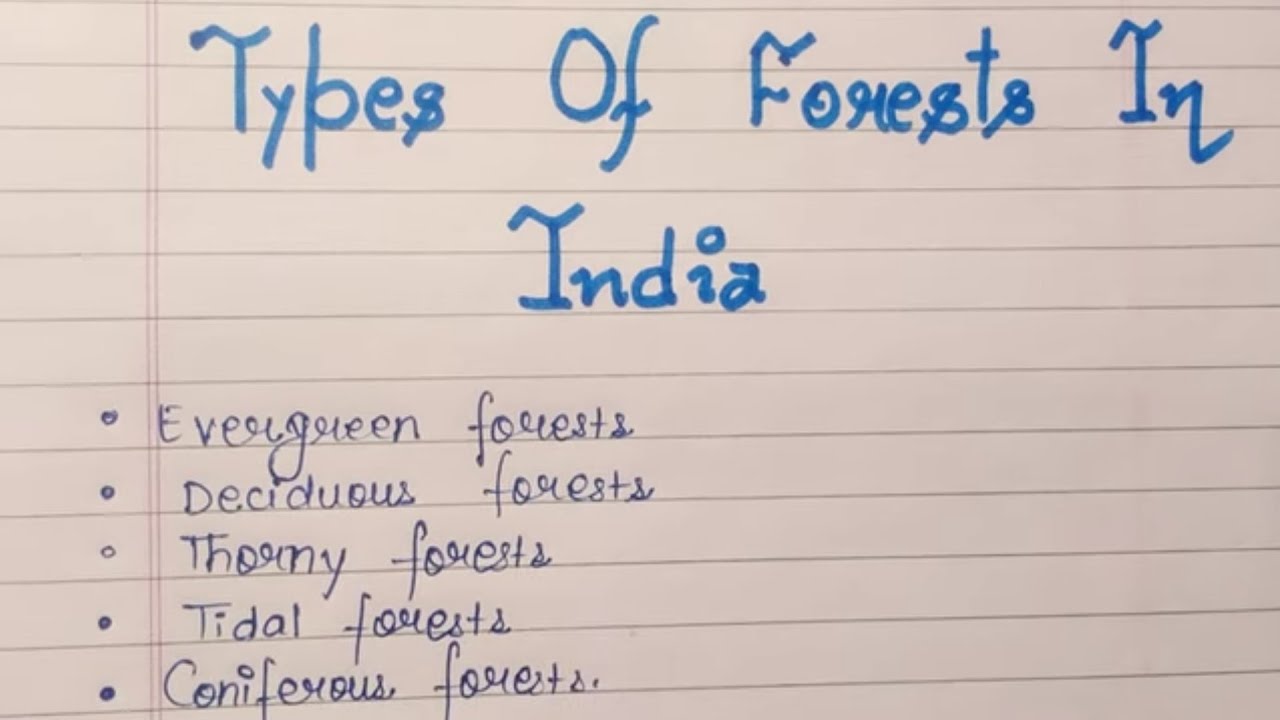 Types Of Forests In
India
• Evergreen forests
• Deciduous forests
• Thorny forests
• Tidal forests
• Coniferous forests.